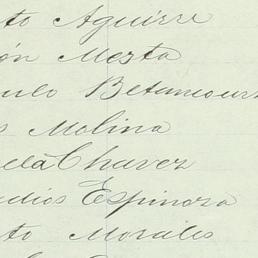 to Aguirre
ón Mesta
ulo Betancourt
s Molina
ela Chavez
udios Espinoza
to Morales